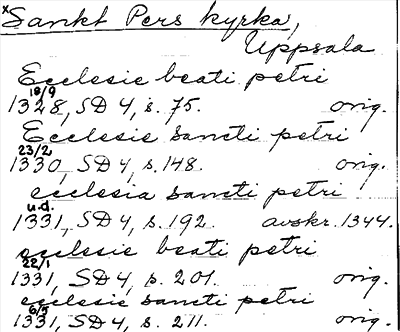 x Sankt Pers kyrka,
Uppsala
Ecclesie beati petri
18/9
1328, SD 4, s. 75. orig.
Ecclesie sancti petri
23/2
1330, SD 4, s. 148. orig.
ecclesia sancti petri
u.d.
1331, SD 4, s. 192. avskr. 1344.
ecclesie beati petri
22/1
1331, SD 4, s. 201. orig.
ecclesie sancti petri
6/5
1331, SD 4, s. 211. orig.